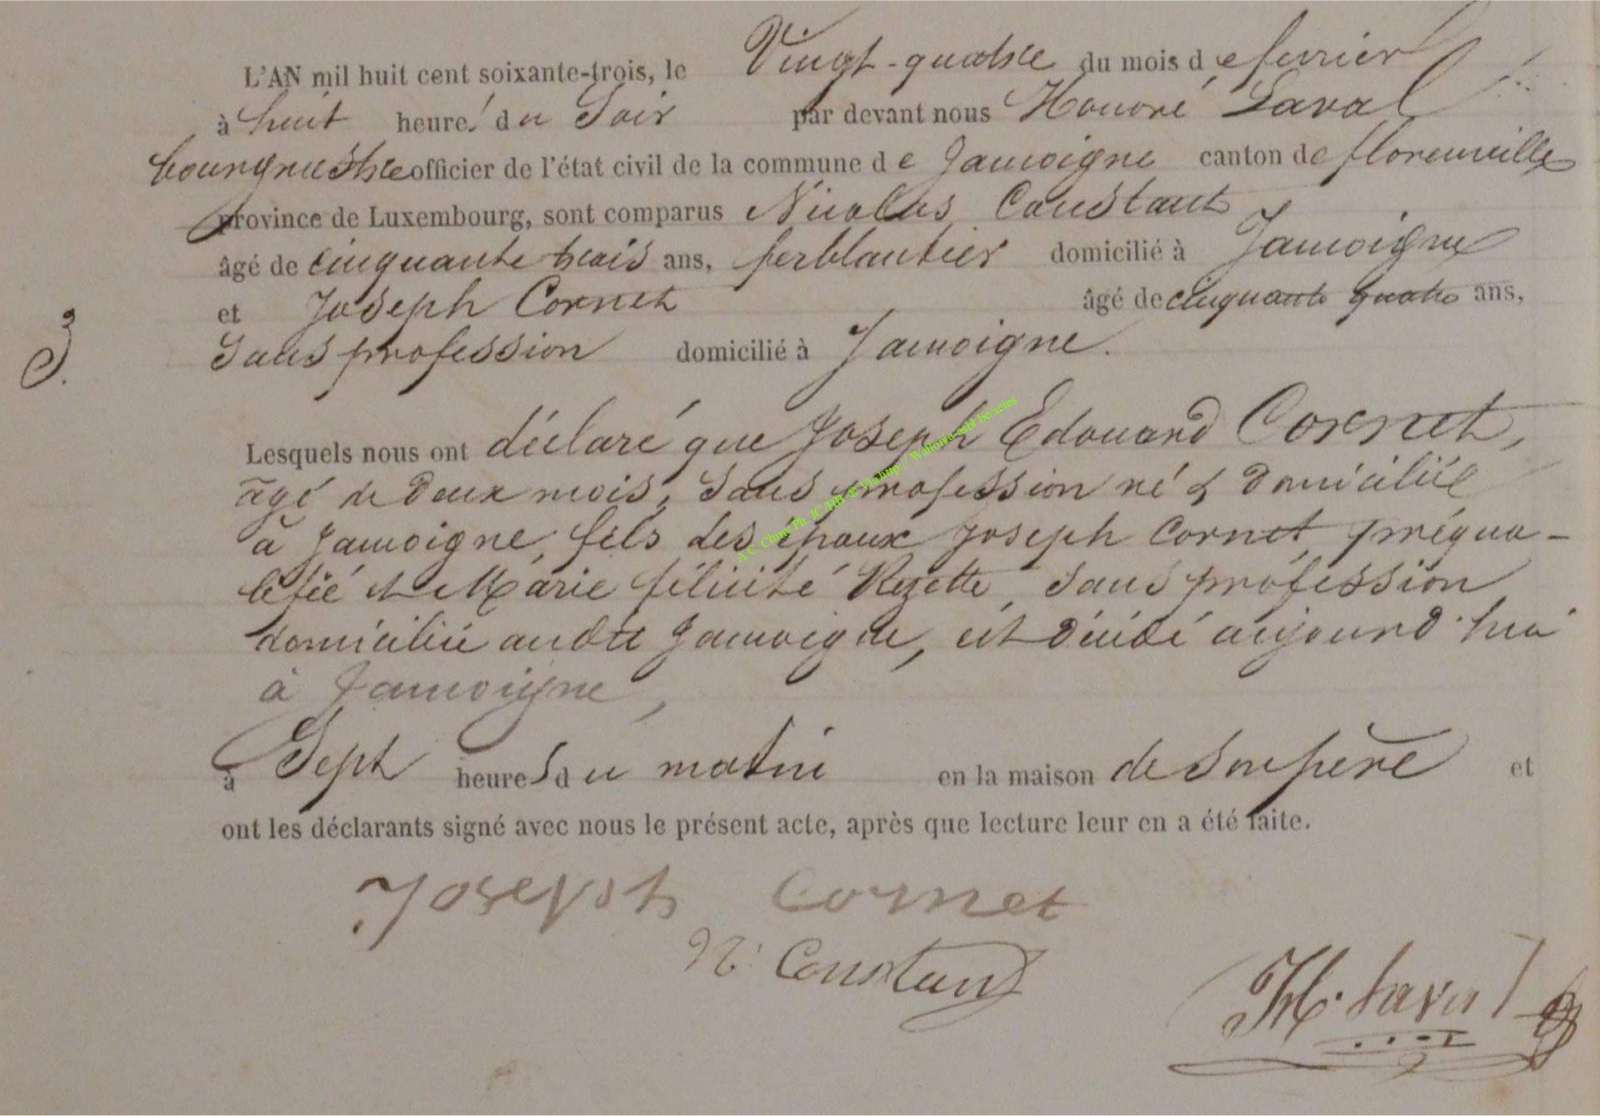 L'AN mil huit cent soixante-trois, le Vingt-quatre du mois de fevrier
à huit heures du Soir par devant nous Honoré Laval
bourgmestre officier de l'état civil de la commune de Jamoigne canton de florenville
province de Luxembourg, sont comparus Nicolas Constant
âgé de cinquante trois ans, ferblantier domicilié à Jamoigne
et Joseph Cornet âgé de cinquante quatre ans,
3.
Sans profession domicilié à Jamoigne.
Lesquels nous ont déclaré que Joseph Edouard Cornet,
âgé de Deux mois, Sans profession né & Domicilié
à Jamoigne, fils des époux Joseph Cornet, préqua-
lifié et Marie félicité Rezette, Sans profession
domiciliée audit Jamoigne, est Décédé aujourd'hui
à Jamoigne,
à Sept heures du matin en la maison de Son père et
ont les déclarants signé avec nous le présent acte, après que lecture leur en a été faite.
Joseph Cornet
N. Constant
H. Laval